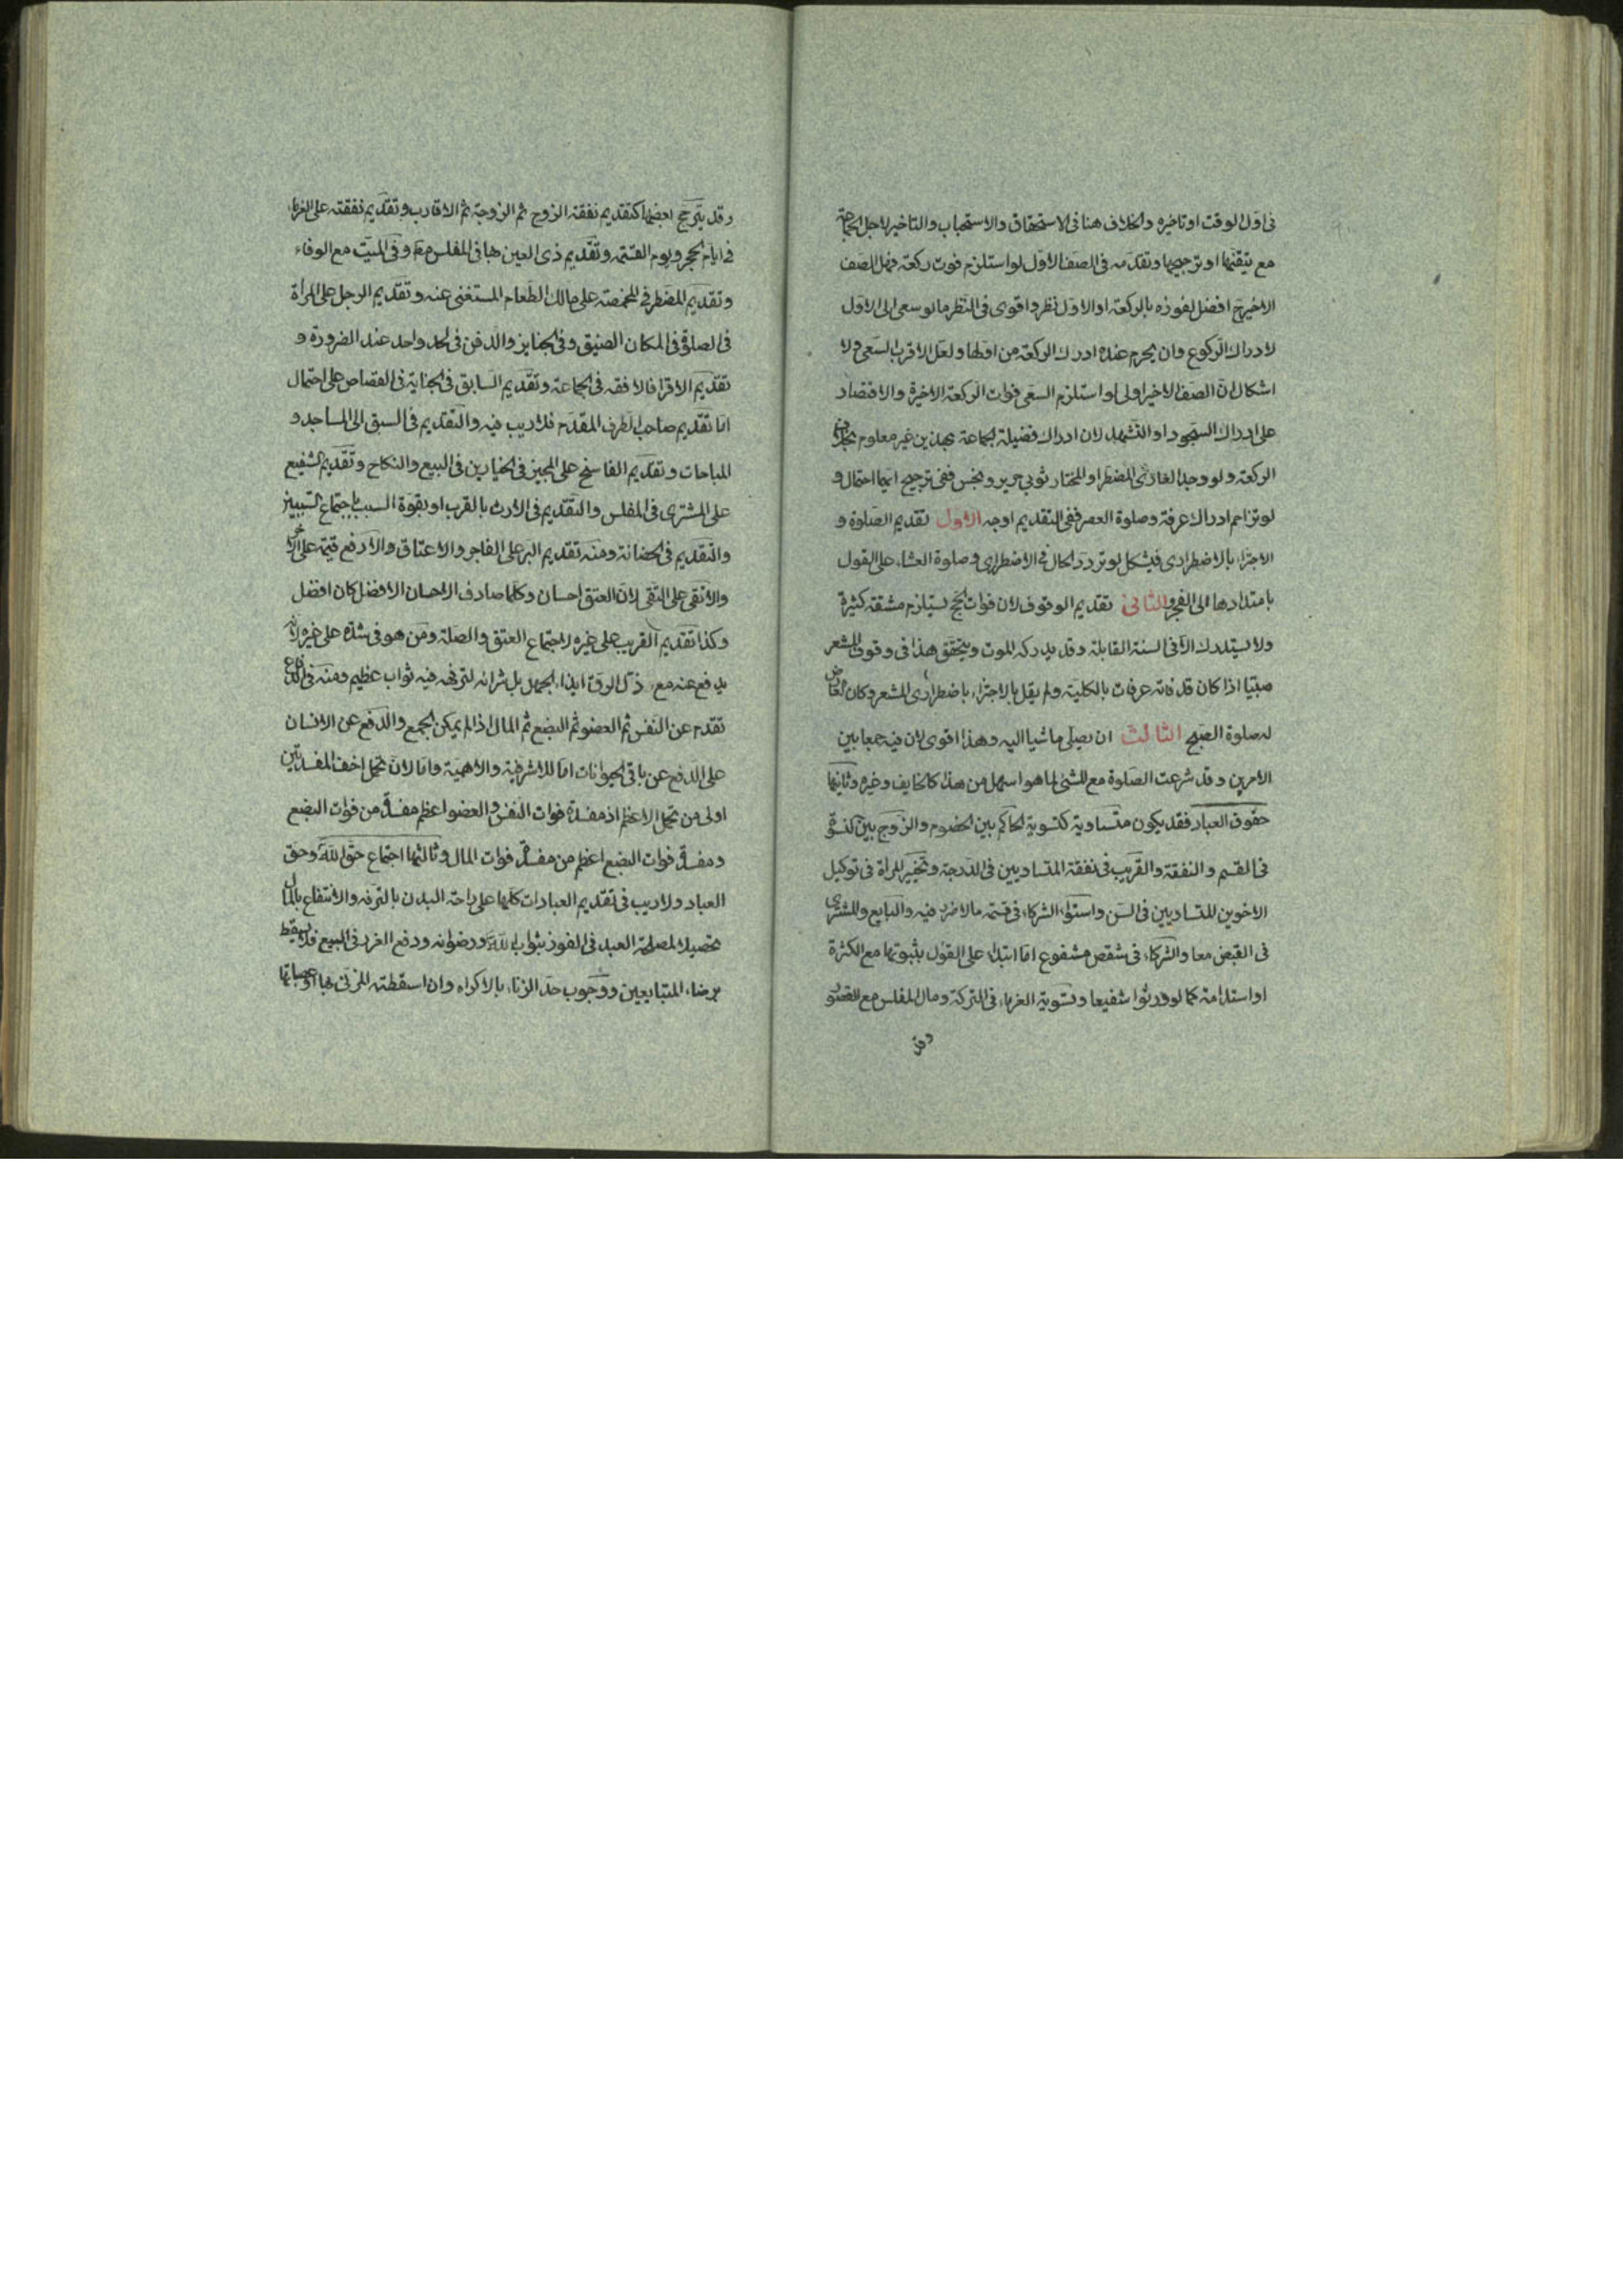 فى اول الوقت او تاخيره والخلاف هنا فى الاستحقاق والاستحباب والتاخير لاجل الجماعة
مع تيقنها او ترجيحها وتقدمه فى الصف الاول لو استلزم فوت ركعة فهل الصف
الاخير ح افضل لفوزه بالركعة او الاول نظر واقوى فى النظر ما لو سعى الى الاول
لادراك الركوع وان يحرم عنده ادرك الركعة من اولها ولعل الاقرب السعى ولا
اشكال ان الصف الاخير اولى لو استلزم السعى فوات الركعة الاخيرة والاقتصاد
على ادراك السجود او التشهد لان ادراك فضيلة الجماعة بهذين غير معلوم بخلاف
الركعة ولو وجد العارى المضطر او المختار ثوبى حرير ونجس ففى ترجيح ايهما احتمال و
لو تزاحم ادراك عرفة وصلوة العصر ففى التقديم اوجه الاول تقديم الصلوة و
الاجتزاء بالاضطرارى فيشكل لو تردد الحال فى الاضطرارى وصلوة العشاء على القول
بامتدادها الى الفجر والثانى تقديم الوقوف لان فوات الحج يستلزم مشقة كثيرة
ولا يستدرك الا فى السنة القابلة وقد يدركه الموت ويتحقق هذا فى وقوف المشعر
مبتيا اذا كان قد فاته عرفات بالكلية ولم يقل بالاجتزاء باضطرارى المشعر وكان المعارض
له صلوة الصبح الثالث ان يصلى ماشيا اليه وهذا اقوى لان فيه جمعا بين
الامرين وقد شرعت الصلوة مع المشى لما هو اسهل من هذا كالخايف وغيره وثانيها
حقوق العباد فقد يكون متساوية كتسوية الحاكم بين الخصوم والزوج بين كنسوة
فى القسم والنفقة والقريب فى نفقة المتساويين فى الدرجة وتخيير المراة فى توكيل
الاخوين المتساويين فى السن واستواء الشركاء فى قسمة ما لا ضرر فيه والبايع والمشترى
فى القبض معا والشركاء فى شقص مشفوع اما ابتداء على القول بثبوتها مع الكثرة
او استدامة كما لو ورثوا شفيعا وتسوية الغرماء فى التركة ومال المفلس مع القصور
وقد
وقد يترجح بعضها كتقديم نفقة الزوج ثم الزوجة ثم الاقارب وتقديم نفقته على الغرماء
فى ايام الحجر ويوم القسمة وتقديم ذى العين بها فى المفلس مطلقا وفى الميت مع الوفاء
وتقديم المضطر فى المخمصة على مالك الطعام المستغنى عنه وتقديم الرجل على المراة
فى الصلوة فى المكان الضيق وفى الجنايز والدفن فى لحد واحد عند الضرورة و
تقديم الاقرا فالافقه فى الجماعة وتقديم السابق فى الجناية فى القصاص على احتمال
اما تقديم صاحب الطرف المقدم فلا ريب فيه والتقديم فى السبق الى المساجد و
المباحات وتقديم الفاسخ على المجيز فى الخيارين فى البيع والنكاح وتقديم الشفيع
على المشترى فى المفلس والتقديم فى الارث بالقرب او بقوة السبب باجتماع السببين
والتقديم فى الحضانة ومنه تقديم البر على الفاجر والاعتاق والارفع قيمة على الاخس
والاتقى على التقى لان العتق احسان وكلما صادف الاحسان الافضل كان افضل
وكذا تقديم القريب على غيره لاجتماع العتق والصلة ومن هو فى شدة على غيره لانه
يدفع عنه مع ذل الرق ايذاء الجهل بل شرائه لترفهه فيه ثواب عظيم ومنه فى الدفاع
تقدم عن النفس ثم العضو ثم البضع ثم المال اذا لم يمكن الجمع والدفع عن الانسان
على الدفع عن باقى الحيوانات اما للاشرفية والاهمية واما لان تحمل اخف المفسدتين
اولى من تحمل الاعظم اذ مفسدة فوات النفس والعضو اعظم مفسدة من فوات البضع
ومفسدة فوات البضع اعظم من مفسدة فوات المال وثالثها اجتماع حق الله وحق
العباد ولا ريب فى تقديم العبادات كلها على راحة البدن بالترفه والانتفاع بالمال
تحصيلا لمصلحة العبد فى الفوز بثواب الله ورضوانه ودفع الغرر فى البيع فلا يسقط
برضاء المتبايعين ووجوب حد الزناء بالاكراه وان اسقطته المزنى بها او عصباتها